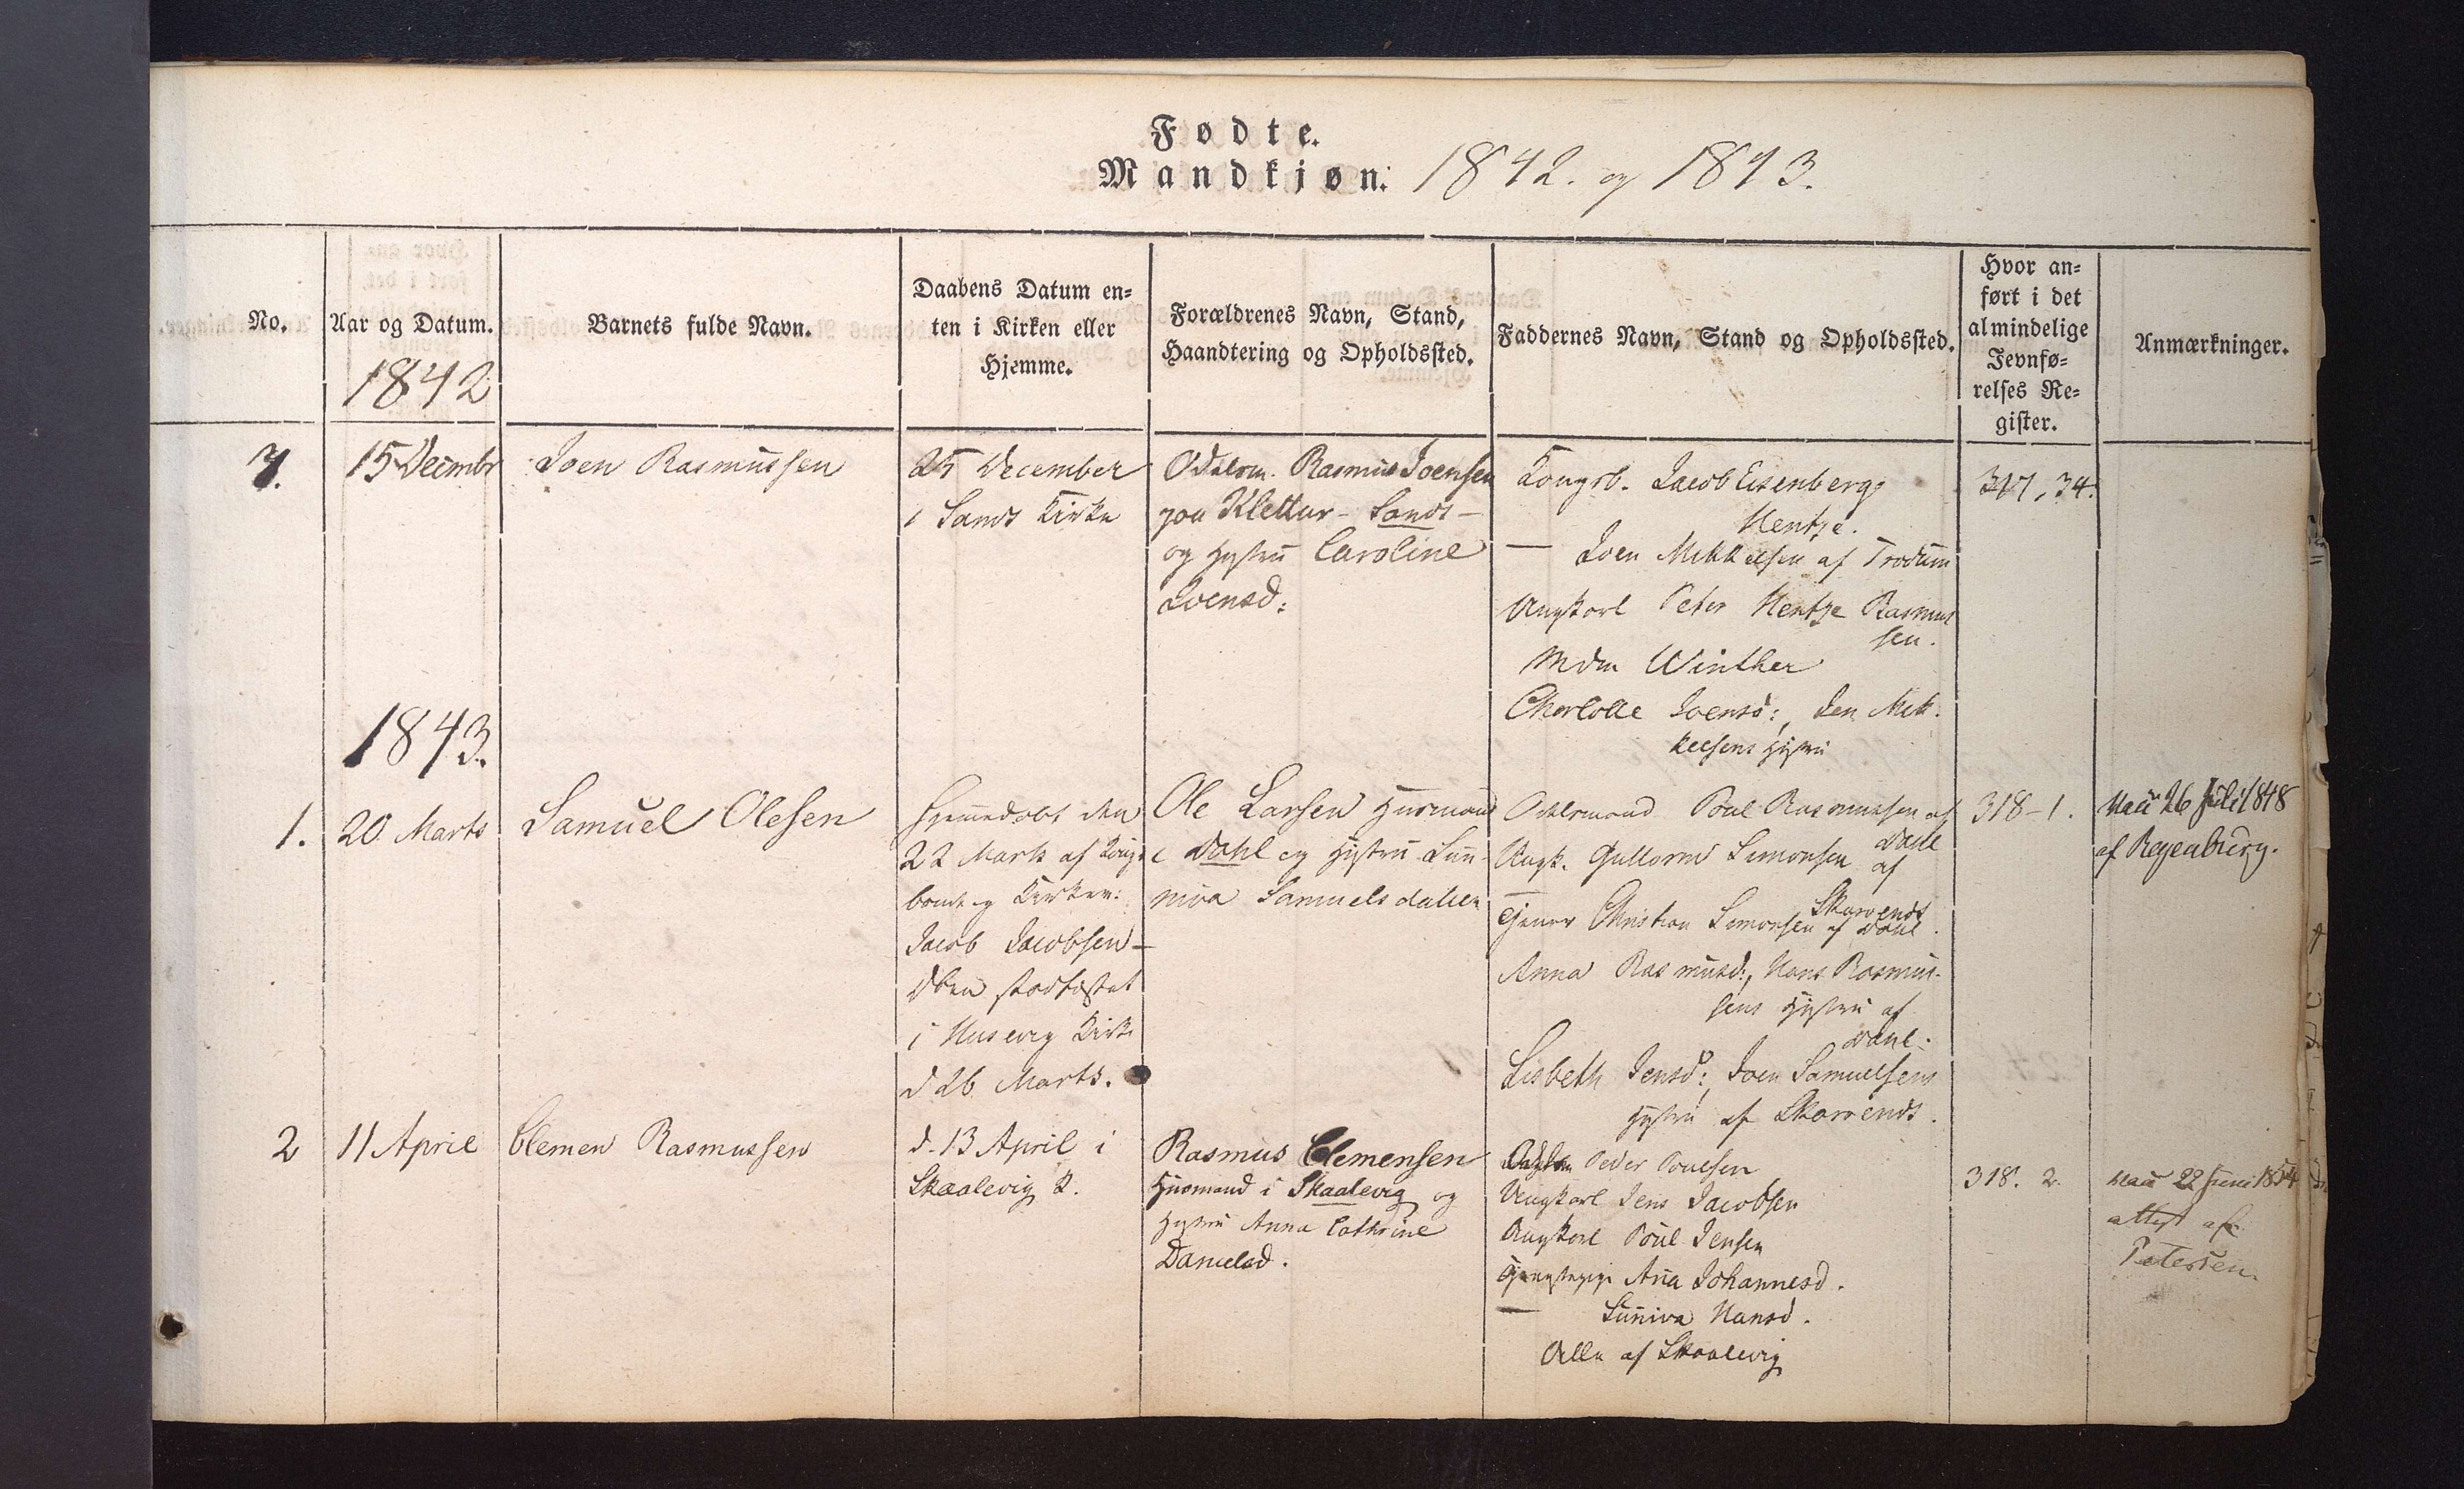 Fødte.
Mandkjøn. 1842. og 1843.
No.
Aar og Datum.
1842
Barnets fulde Navn.
Daabens Datum en-
ten i Kirken eller
Hjemme.
Forældrenes Navn, Stand,
Haandtering og Opholdssted.
Faddernes Navn, Stand og Opholdssted.
Hvor an-
ført i det
almindelige
Jevnfø-
relses Re-
gister.
Anmærkninger.
7.
15 Decembr
Joen Rasmussen
25 December
i Sands Kirke
Odelsm. Rasmus Joensen
paa Klettur - Sands -
og Hustru Caroline
Joensd:
Kongsb. Jacob Eisenberg
Hentze.
— Joen Mikkelsen af Trødum
Ungkarl Peter Hentze Rasmus
sen.
Mdm Winther
Charlotte Joensd:, Jen Mik-
kelsens Hustru
317, 34.
1843.
1.
20 Marts
Samuel Olesen
Hjemmedøbt den
22 Marts af Kongs-
bonde og Kirkev:
Jacob Jacobsen -
Dben stadfæstet
i Husevig Kirke
d 26 Marts.
Ole Larsen Husmand
i Dahl og Hustru Sun-
niva Samuelsdatter
Odelsmand Poul Rasmussen af
Dahl
Ungk. Guttorm Simonsen af
Skarvends
Christian Simonsen af Dahl.
Anna Rasmusd:, Hans Rasmus-
sens Hustru af
Dahl.
Lisbeth Jensd:, Joen Samuelsens
Hustru af Skarvends.
318-1.
Vacc 26 Juli 1848
af Regenburg.
2
11 April
Clemen Rasmussen
d. 13 April i
Skaalevig K.
Rasmus Clemensen
Husmand i Skaalevig og
Hustru Anna Cathrine
Danielsd.
Peder Poulsen
Ungkarl Jens Jacobsen
Ungkarl Poul Jensen
Tjenestepige Anna Johannesd.
— Sunniva Hansd.
Alle af Skaalevig
318. 2.
Vacc 22 Juni 1854
attest af
Petersen.